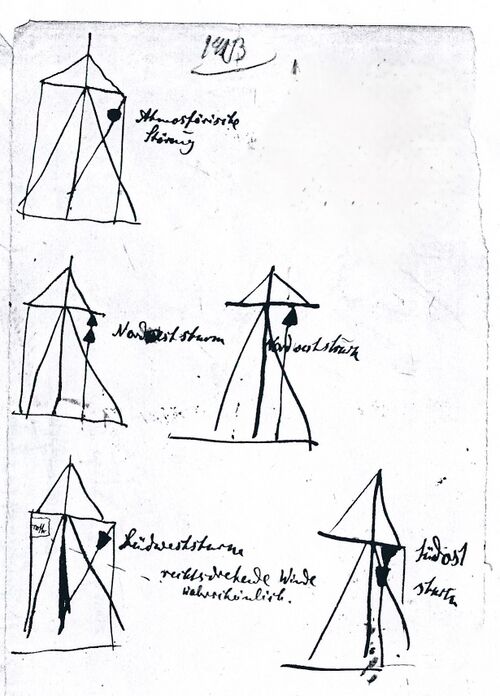 Atmosfärische
Störung
Nordweststurm
Nordoststurm
Südweststurm
rechtsdrehende Winde
wahrscheinlich.
Südost
sturm